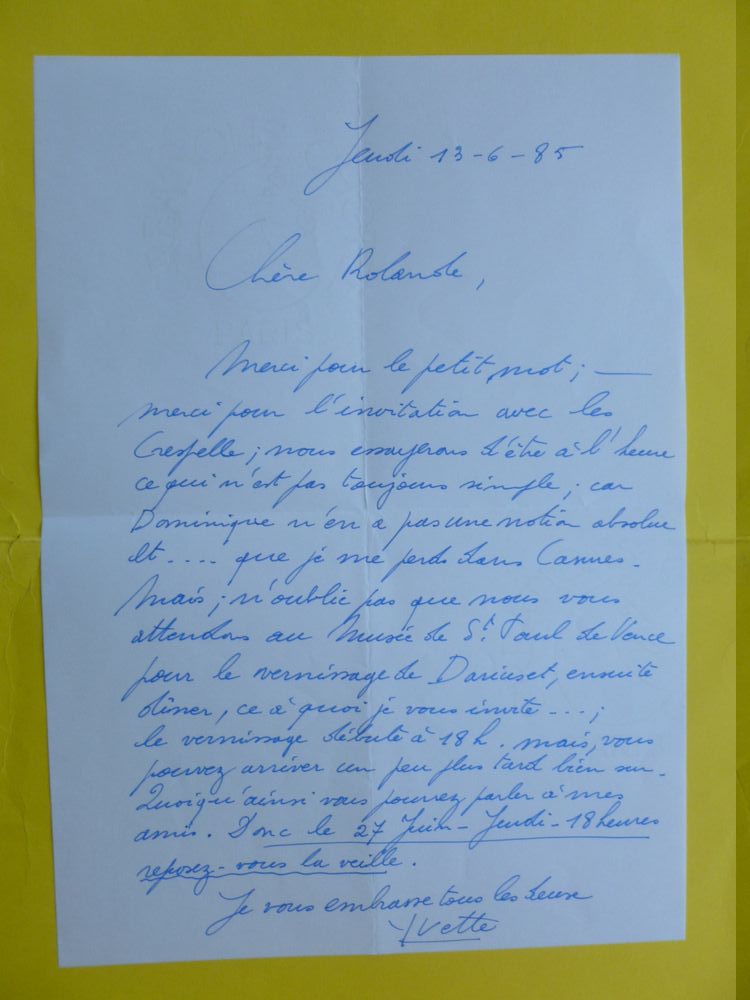 Jeudi 13-6-85
Chère Rolande,
Merci pour le petit mot; —
merci pour l'invitation avec les
Crespelle; nous essayerons d'être à l'heure
ce qui n'est pas toujours simple; car
Dominique n'en a pas une notion absolue
et.... que je me perds dans Cannes.
Mais; n'oublie pas que nous vous
attendons au Musée de St. Paul de Vence
pour le vernissage de Dariuset, ensuite
dîner, ce à quoi je vous invite...;
le vernissage débute à 18h. mais, vous
pouvez arriver un peu plus tard bien sur.
Quoiqu'ainsi vous pourrez parler à mes
amis. Donc le 27 Juin - Jeudi - 18 heures
reposez-vous la veille.
Je vous embrasse tous les deux
Yvette